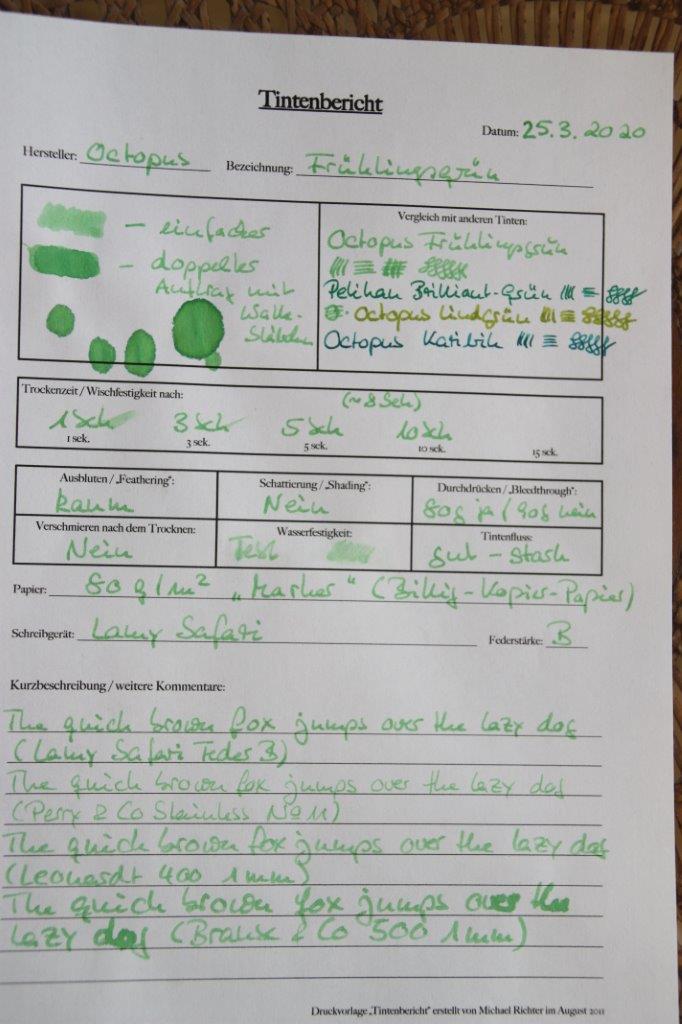 Tintenbericht
Datum: 25.3.2020
Hersteller: Octopus Bezeichnung: Frühlingsgrün
– einfacher
– doppelter
Auftrag mit
Watte-
Stäbchen
Vergleich mit anderen Tinten:
Octopus Frühlingsgrün
Pelikan Brilliant-Grün
Octopus Lindgrün
Octopus Karibik
Trockenzeit / Wischfestigkeit nach:
(~8 Sek)
1 Sek 3 Sek 5 Sek 10 Sek
1 sek. 3 sek. 5 sek. 10 sek. 15 sek.
Ausbluten / „Feathering“: Schattierung / „Shading“: Durchdrücken / „Bleedthrough“:
kaum Nein 80g ja / 90g nein
Verschmieren nach dem Trocknen: Wasserfestigkeit: Tintenfluss:
Nein Test gut – stark
Papier: 80 g/m² „Marker“ (Billig-Kopier-Papier)
Schreibgerät: Lamy Safari Federstärke: B
Kurzbeschreibung / weitere Kommentare:
The quick brown fox jumps over the lazy dog
(Lamy Safari Feder B)
The quick brown fox jumps over the lazy dog
(Perry & Co Stainless No 11)
The quick brown fox jumps over the lazy dog
(Leonardt 400 1mm)
The quick brown fox jumps over the
lazy dog (Brause & Co 500 1mm)
Druckvorlage „Tintenbericht“ erstellt von Michael Richter im August 2011